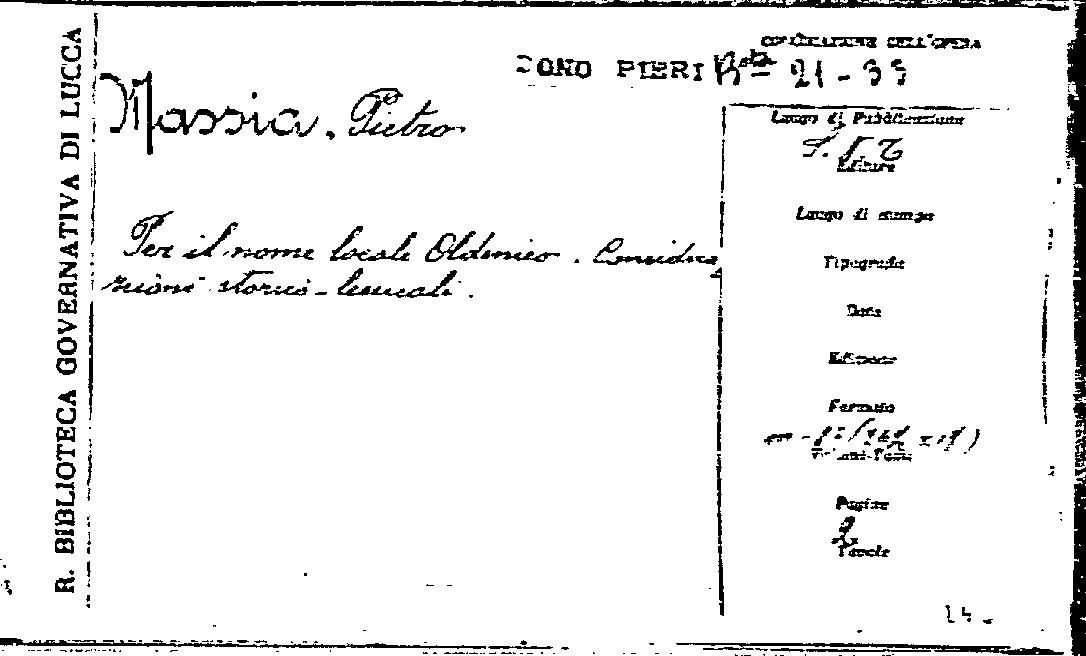 R. BIBLIOTECA GOVERNATIVA DI LUCCA
COLLOCAZIONE DELL'OPERA
DONO PIERI Bta 21-33
Massia, Pietro
Per il nome locale Oldenico. Considera
zioni storico-lessicali.
Luogo di Pubblicazione
S. l. t.
Editore
Luogo di stampa
Tipografia
Data
Edizione
Formato
in-8°
Volumi-Tomi
Pagine
2
Tavole
14.